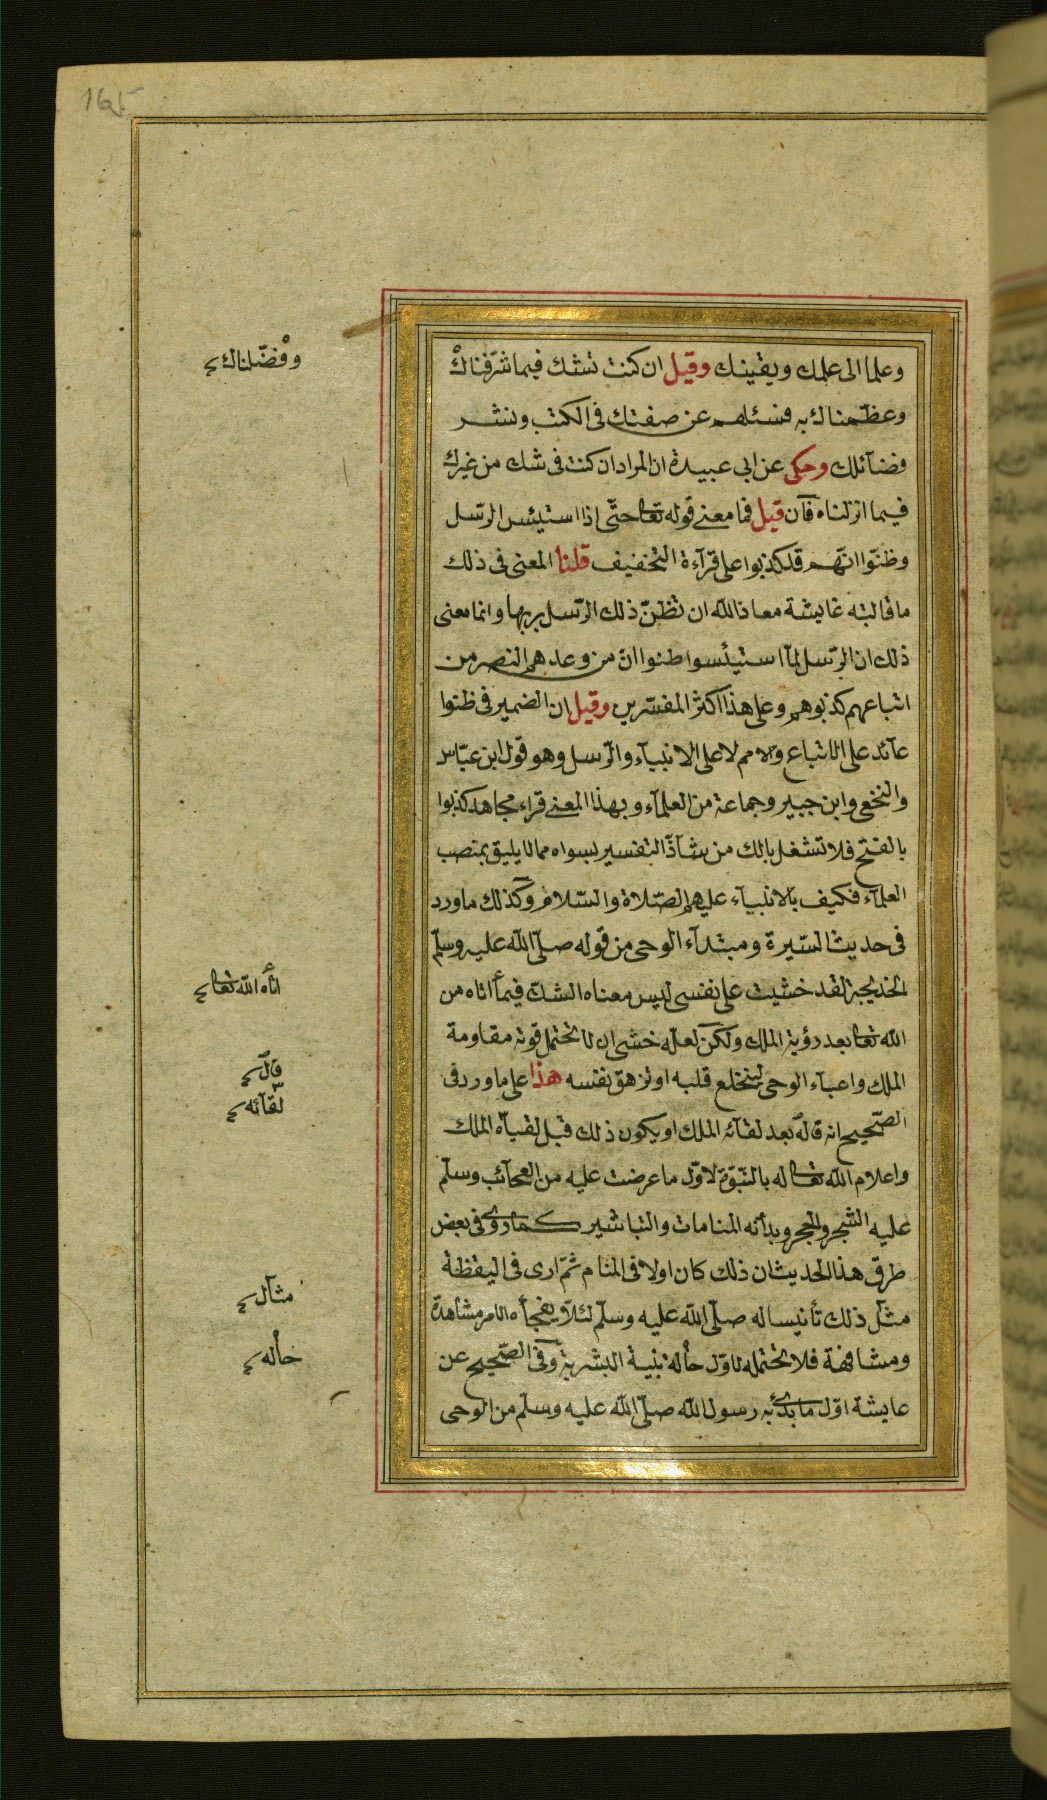 165
وعلما الى علمك ويقينك وقيل ان كنت تشك فيما شرّفناك
وفضّلناك
وعظّمناك به فسئلهم عن صفتك فى الكتب ونشر
فضآئلك وحكى عن ابى عبيدة ان المراد ان كنت فى شك من غيرك
فيما انزلناه فآن قيل فما معنى قوله تعالى حتّى اذا استيئس الرّسل
وظنّوا انّهم قد كذبوا على قرآءة التخفيف قلنا المعنى فى ذلك
ما قالته عايشة معاذ الله ان تظنّ ذلك الرّسل بربها وانما معنى
ذلك ان الرّسل لمآ استيئسوا ظنوا انّ من وعدهم النصر من
اتباعهم كذبوهم وعلى هذا اكثر المفسّرين وقيل ان الضمير فى ظنوا
عآئد على الاتباع والامم لا على الانبيآء والرّسل وهو قول ابن عبّاس
والنخعى وابن جبير وجماعة من العلمآء وبهذا المعنى قراء مجاهد كذبوا
بالفتح فلا تشغل بالك من شآذّ التفسير بسواه مما لا يليق بمنصب
العلمآء فكيف بالانبيآء عليهم الصّلاة والسّلام وكذلك ما ورد
فى حديث السّيرة ومبتدآء الوحى من قوله صلّى الله عليه وسلّم
لخديجة لقد خشيت على نفسى ليس معناه الشكّ فيمآ اتاه من
اتاه الله تعالى
الله تعالى بعد رؤية الملك ولكن لعلّه خشى ان لا تحتمل قوته مقاومة
الملك واعبآء الوحى لينخلع قلبه او تزهق نفسه هذا على ما ورد فى
قال
لقآئه
الصّحيح انه قاله بعد لقآئه الملك او يكون ذلك قبل لقيآه الملك
واعلام الله تعالى له بالنّبوّة لاوّل ما عرضت عليه من العجآئب وسلّم
عليه الشّجر والحجر وبدأته المنامات والتباشير كما روى فى بعض
طرق هذا الحديث ان ذلك كان اولا فى المنام ثمّ ارى فى اليقظة
مثل ذلك تأنيسا له صلّى الله عليه وسلّم لئلّا يفجأه الامر مشاهدة
مثال
ومشافهة فلا تحتمله لاوّل حالة بنية البشرية وفى الصّحيح عن
حاله
عايشة اوّل ما بدئ به رسول الله صلّى الله عليه وسلّم من الوحى